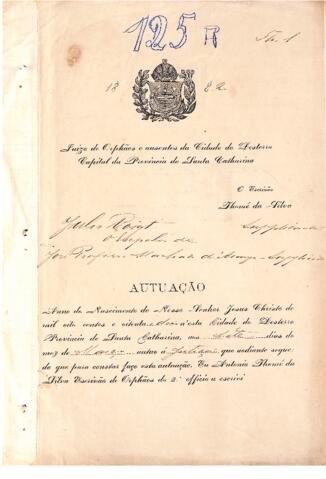 125 A
Fl. 1
18 82
Juizo de Orphãos e ausentes da Cidade do Desterro
Capital da Provincia de Santa Catharina
O Escrivão
Thomé da Silva
Julio Voigt
José Porfirio Machado de Araujo
AUTUAÇÃO
Anno do Nascimento de Nosso Senhor Jesus Christo de
mil oito centos e oitenta e dois n'esta Cidade do Desterro
Provincia de Santa Catharina, aos sete dias do
mez de Março autuo a petição que adiante segue
do que para constar faço esta autuação. Eu Antonio Thomé da
Silva Escrivão de Orphãos do 2.º officio o escrevi